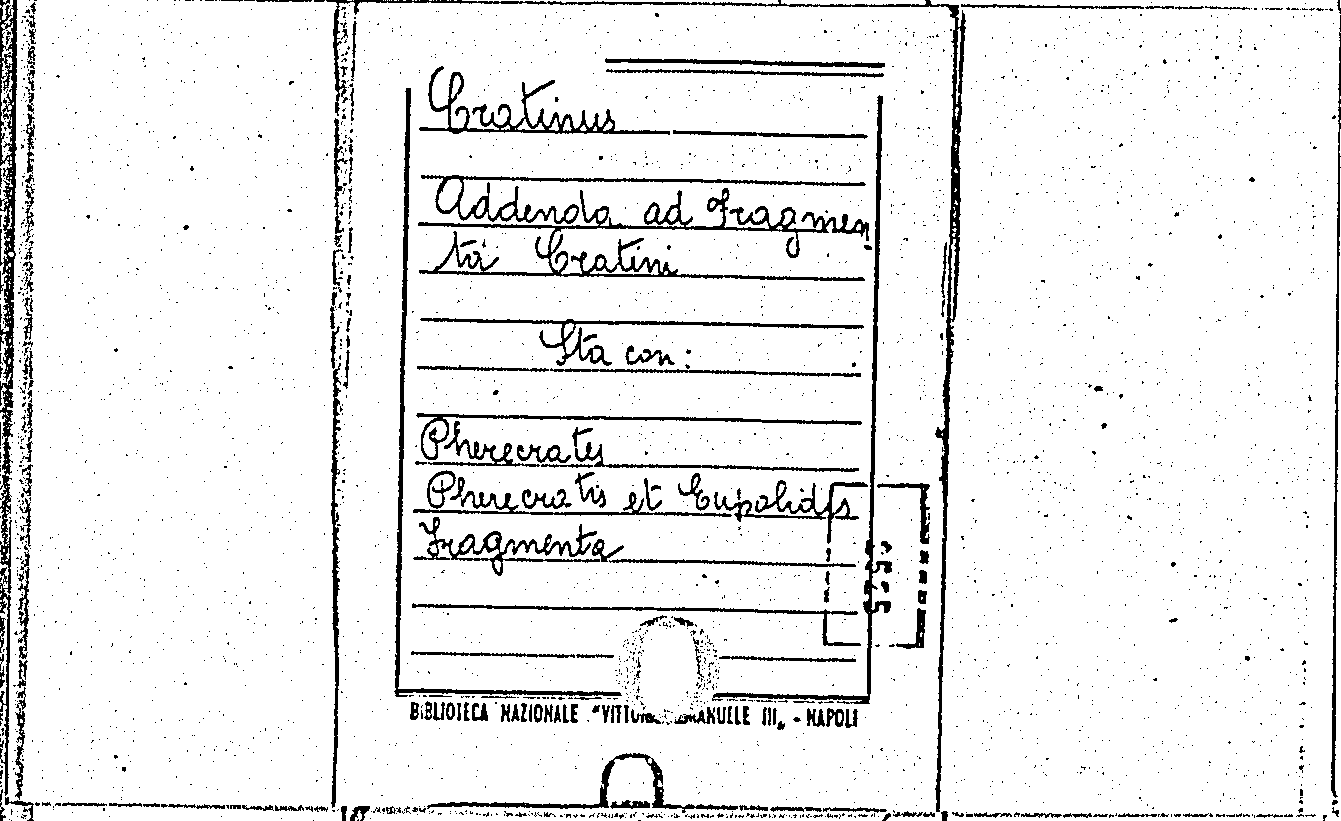 Cratinus
Addenda ad Fragmen
ta Cratini
Sta con:
Pherecrates
Pherecratis et Eupolidis
Fragmenta
BIBLIOTECA NAZIONALE "VITTORIO EMANUELE III„ - NAPOLI